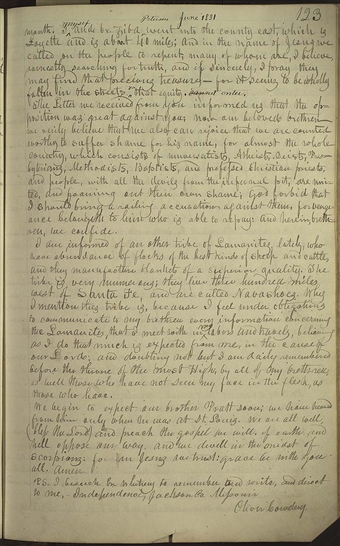 Petersen June 1831 123
myself
month, & bro. Ziba went into the county east, which is
Lafayette and is about 40 miles; and in the name of Jesus, we
called on the people to repent, many of whom are, I believe,
earnestly searching for truth, and if sincerely, I pray they
may find that precious treasure, for it seems to be wholly
fallen in the streets, that equity cannot enter.
The letter we received from you informed us that the op-
position was great against you. Now our beloved brethren
we verily believe that we also can rejoice that we are counted
worthy to suffer shame for his name; for almost the whole
country, which consists of universalists, Atheists, Deists, Pres-
byterians, Methodists, Baptists, and professed Christians, priests,
and people, with all the devils from the infernal pit, are uni-
ted, and foaming out their own shame; God forbid that
I should bring a railing accusation against them, for venge-
ance belongeth to him who is able to repay and herein, breth-
ren, we confide.
I am informed of an other tribe of Lamanites lately, who
have abundance of flocks of the best kinds of sheep and cattle,
and they manufacture blankets of a superior quality. The
tribe is very numerous; they live three hundred miles
west of Santa Fe, and are called Navashoes. Why
I mention this tribe is, because I feel under obligations
to communicate to my brethren every information concerning
the Lamanites, that I meet with in my labors and travels, believing
as I do that much is expected from me, in the cause of
our Lord; and doubting not but I am daily remembered
before the throne of the Most High, by all of my brethren,
as well those who have not seen my face in the flesh, as
those who have.
We begin to expect our brother Pratt soon; we have heard
from him only when he was at St. Louis. We are all well,
(bless the Lord) and preach the gospel we will, if earth and
hell oppose our way, and we dwell in the midst of
scorpions: for in Jesus we trust: grace be with you
all. Amen.
P.S. I beseech Bro Whitney to remember and write, and direct
to me, Independence, Jackson Co. Missouri
Oliver Cowdery